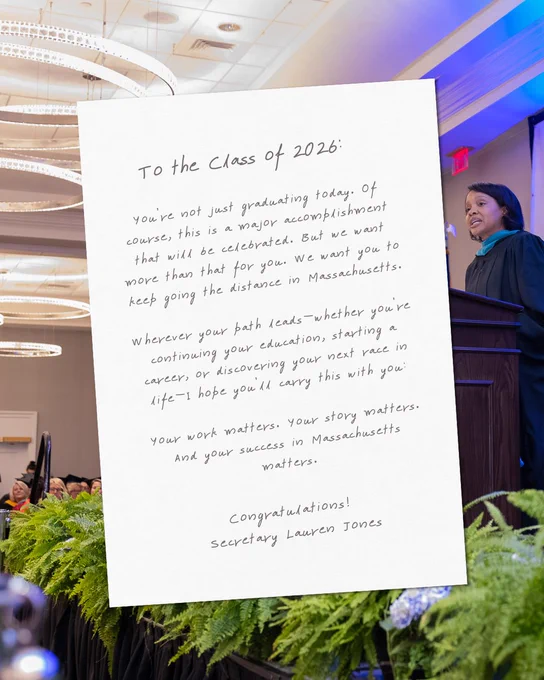 To the Class of 2026:
You're not just graduating today. Of
course, this is a major accomplishment
that will be celebrated. But we want
more than that for you. We want you to
keep going the distance in Massachusetts.
Wherever your path leads—whether you're
continuing your education, starting a
career, or discovering your next race in
life—I hope you'll carry this with you:
Your work matters. Your story matters.
And your success in Massachusetts
matters.
Congratulations!
Secretary Lauren Jones